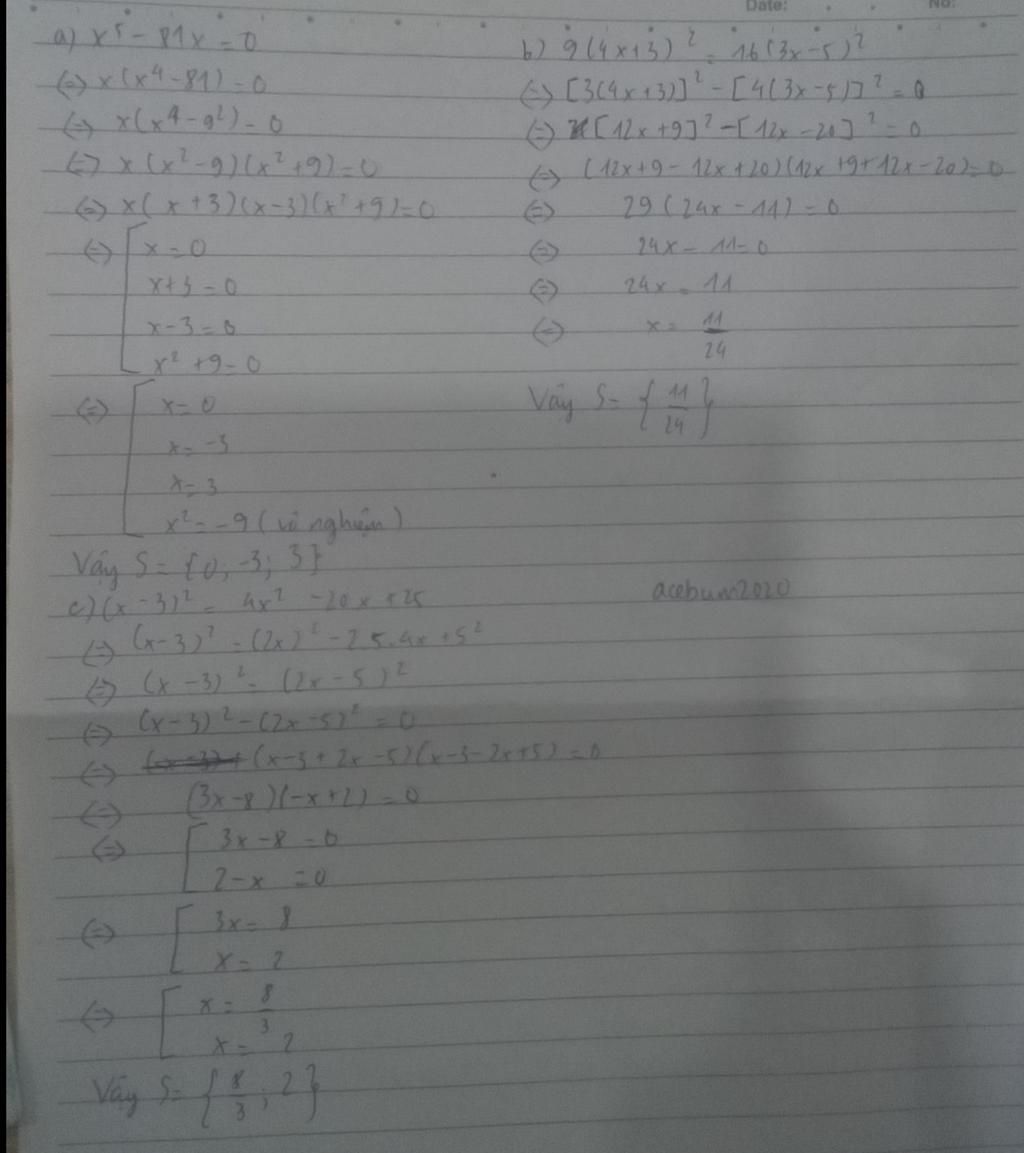 Date: No:
a) x⁵ - 81x = 0
⇔ x(x⁴ - 81) = 0
⇔ x(x⁴ - 9²) = 0
⇔ x(x² - 9)(x² + 9) = 0
⇔ x(x + 3)(x - 3)(x² + 9) = 0
⇔ [ x = 0
x + 3 = 0
x - 3 = 0
x² + 9 = 0
⇔ [ x = 0
x = -3
x = 3
x² = -9 (vô nghiệm)
Vậy S = {0; -3; 3}
b) 9(4x+3)² = 16(3x-5)²
⇔ [3(4x+3)]² - [4(3x-5)]² = 0
⇔ [12x+9]² - [12x-20]² = 0
⇔ (12x+9-12x+20)(12x+9+12x-20) = 0
⇔ 29(24x - 11) = 0
⇔ 24x - 11 = 0
⇔ 24x = 11
⇔ x = 11/24
Vậy S = {11/24}
acebum2020
c) (x-3)² = 4x² - 20x + 25
⇔ (x-3)² = (2x)² - 2.5.4x + 5²
⇔ (x-3)² = (2x-5)²
⇔ (x-3)² - (2x-5)² = 0
⇔ (x-3+2x-5)(x-3-2x+5) = 0
⇔ (3x-8)(-x+2) = 0
⇔ [ 3x - 8 = 0
2 - x = 0
⇔ [ 3x = 8
x = 2
⇔ [ x = 8/3
x = 2
Vậy S = {8/3; 2}